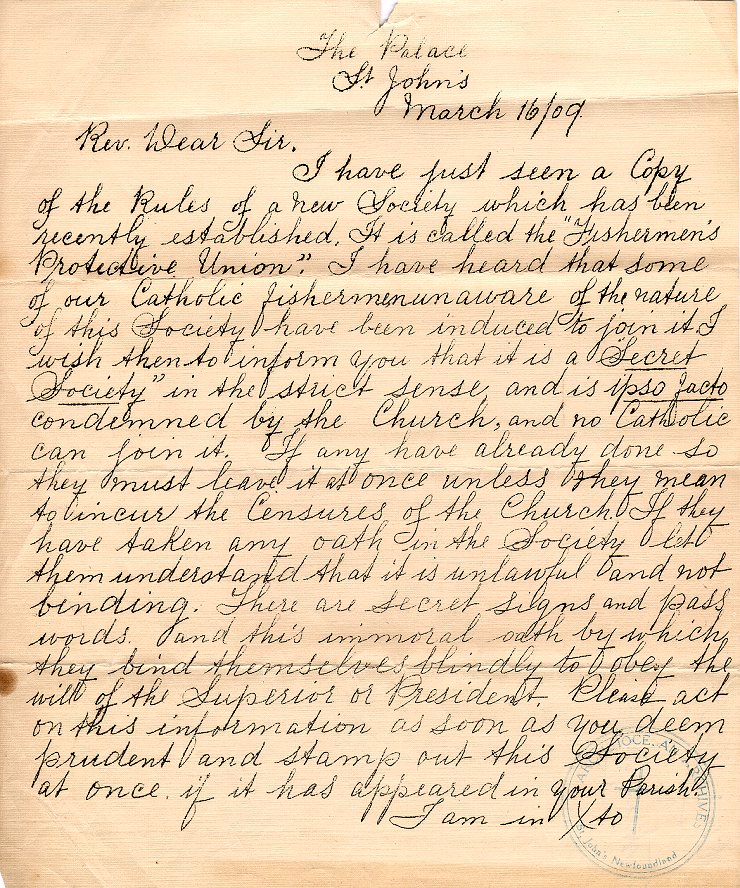 The Palace
St John's
March 16/09.
Rev. Dear Sir.
I have just seen a Copy
of the Rules of a new Society which has been
recently established. It is called the "Fishermen's
Protective Union". I have heard that some
of our Catholic fishermen unaware of the nature
of this Society have been induced to join it. I
wish then to inform you that it is a "Secret
Society" in the strict sense, and is ipso facto
condemned by the Church, and no Catholic
can join it. If any have already done so
they must leave it at once unless they mean
to incur the Censures of the Church. If they
have taken any oath in the Society let
them understand that it is unlawful and not
binding. There are secret signs and pass
words. and this immoral oath by which
they bind themselves blindly to obey the
will of the Superior or President. Please act
on this information as soon as you deem
prudent and stamp out this Society
at once. if it has appeared in your Parish.
I am in Xto
ARCHIVES
St. John's Newfoundland